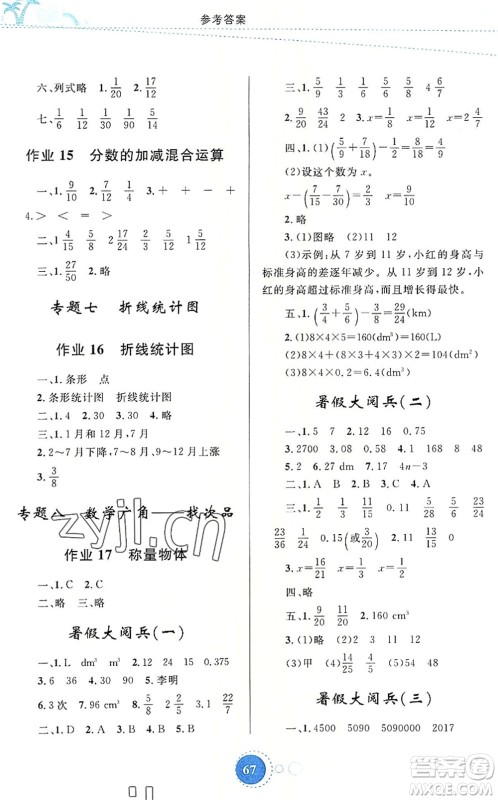 参考答案
六、列式略 1/20 17/12
七、1/6 1/12 9/14 1/30
作业 15 分数的加减混合运算
一、1.7/10 2.9/12 1/4 3.+ + － +
4.> < = >
二、1.4/15 5/8 4/5 2/9 17/24 3/4
三、1.27/50 2.略
专题七 折线统计图
作业 16 折线统计图
一、1.条形 点
2.条形统计图 折线统计图
二、1.15 2.4 2.30 3.30 4.略
三、1.1月和12月 2.7月
3.2~7月下降,7月~9、9~12月上涨
4.3/8
专题八 数学广角——找次品
作业 17 称量物体
一、1.C 2.C
二、略 三、略
暑假大阅兵(一)
一、1.L dm³ dm 2.12 24 15 0.375
3.3/20 7/12 4/9 1/20 4.略 5.李明
6.3次 7.2 2/5 5/8 8.2 1.2 22/5
二、1.D 2.D 3.B 4.C 5.A
三、1.5/9 1/3 5/8 1/12 4 6/7
2.9/20 11/30 11/24 11/16 8/15 1
四、1.(1)(5/9+1/6)-7/18=1/3
(2)设这个数为 x。
x-(7/15-7/30)=2/5 x=19/30
2.略
3.(1)图略 (2)11 12
(3)示例：从 7 岁到 11 岁,小红的身高与
标准身高的差逐年减少。从 11 岁到 12 岁,小
红的身高超过标准身高,而且增长得最快。
五、1.(3/4+5/6)-3/8=29/24(km)
2.(1)8×4×5=160(dm³)=160(L)
(2)8×4+8×5×2+4×5×2=152(dm²)
(3)160÷(8×4×3)=1 2/3(dm)
暑假大阅兵(二)
一、1.5 7 2.30 0.03 0.58
3.2700 0.08 4.1 168 8 48
5.> < > > 6.12 dm 7.4n－3
二、1.A 2.B 3.C 4.B 5.A
三、1.9/20 11/30 1/2 1/15 5/6 7/24
23/36 1/14 23/24 2.0.15(或3/20) 1 13/16
3.x=16/33 x=1/4 x=9/10
四、略
五、1.9/20 2.略 3.A 4.160 cm²
5.(1)图略 (2)45
(3)甲 2/3 1/4 (5)54 48
暑假大阅兵(三)
一、1.4500 4500 5090000 2017
67